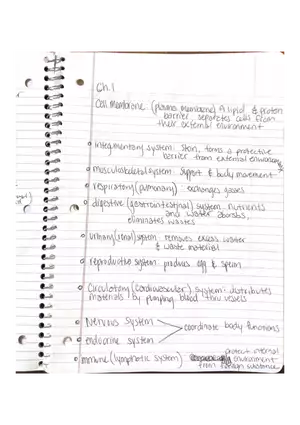 Ch.1
Cell Membrane (plasma membrane) A lipid & protein
barrier separates cells from
their external environment
integmentary system: skin, forms a protective
barrier from external environment
musculoskeletal system: support & body movement
respiratory (pulmonary): exchanges gases
digestive (gastrointestinal) system: nutrients
and water absorbs,
eliminates wastes
urinary (renal) system: removes excess water
& waste material
reproductive system: produces egg & sperm
Circulatory (cardiovascular) system: distributes
materials by pumping blood thru vessels
Nervous system
coordinate body functions
endocrine system
protect internal
immune (lymphatic system) environment
from foreign substance